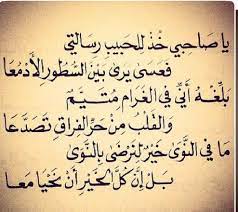 يا صَاحِبي خُذ لِلحبيبِ رِسالَتي
فَعسَى يرىٰ بَيْنَ السُّطورِ الأدمُعَا
بَلِّغهُ أنِّي في الغَرامِ مُتيَّمٌ
وَالقَلبُ مِنْ حَرِّ الفِراقِ تَصَدَّعَا
مَا في النَّوَىٰ خَيْرٌ لِنَرضَىٰ بِالنَّوىٰ
بَل إنَّ كلَّ الخَيْرِ أنْ نَحْيَا مَعَا